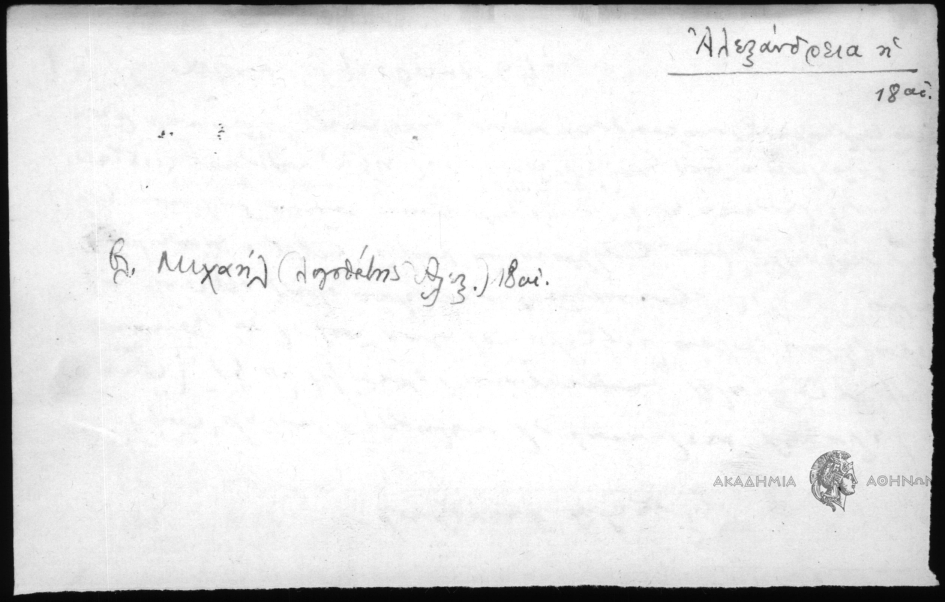 Ἀλεξάνδρεια ἡ
18 αἰ.
βλ. Μιχαήλ (λογοθέτης Ἀλεξ.) 18 αἰ.
ΑΚΑΔΗΜΙΑ ΑΘΗΝΩΝ